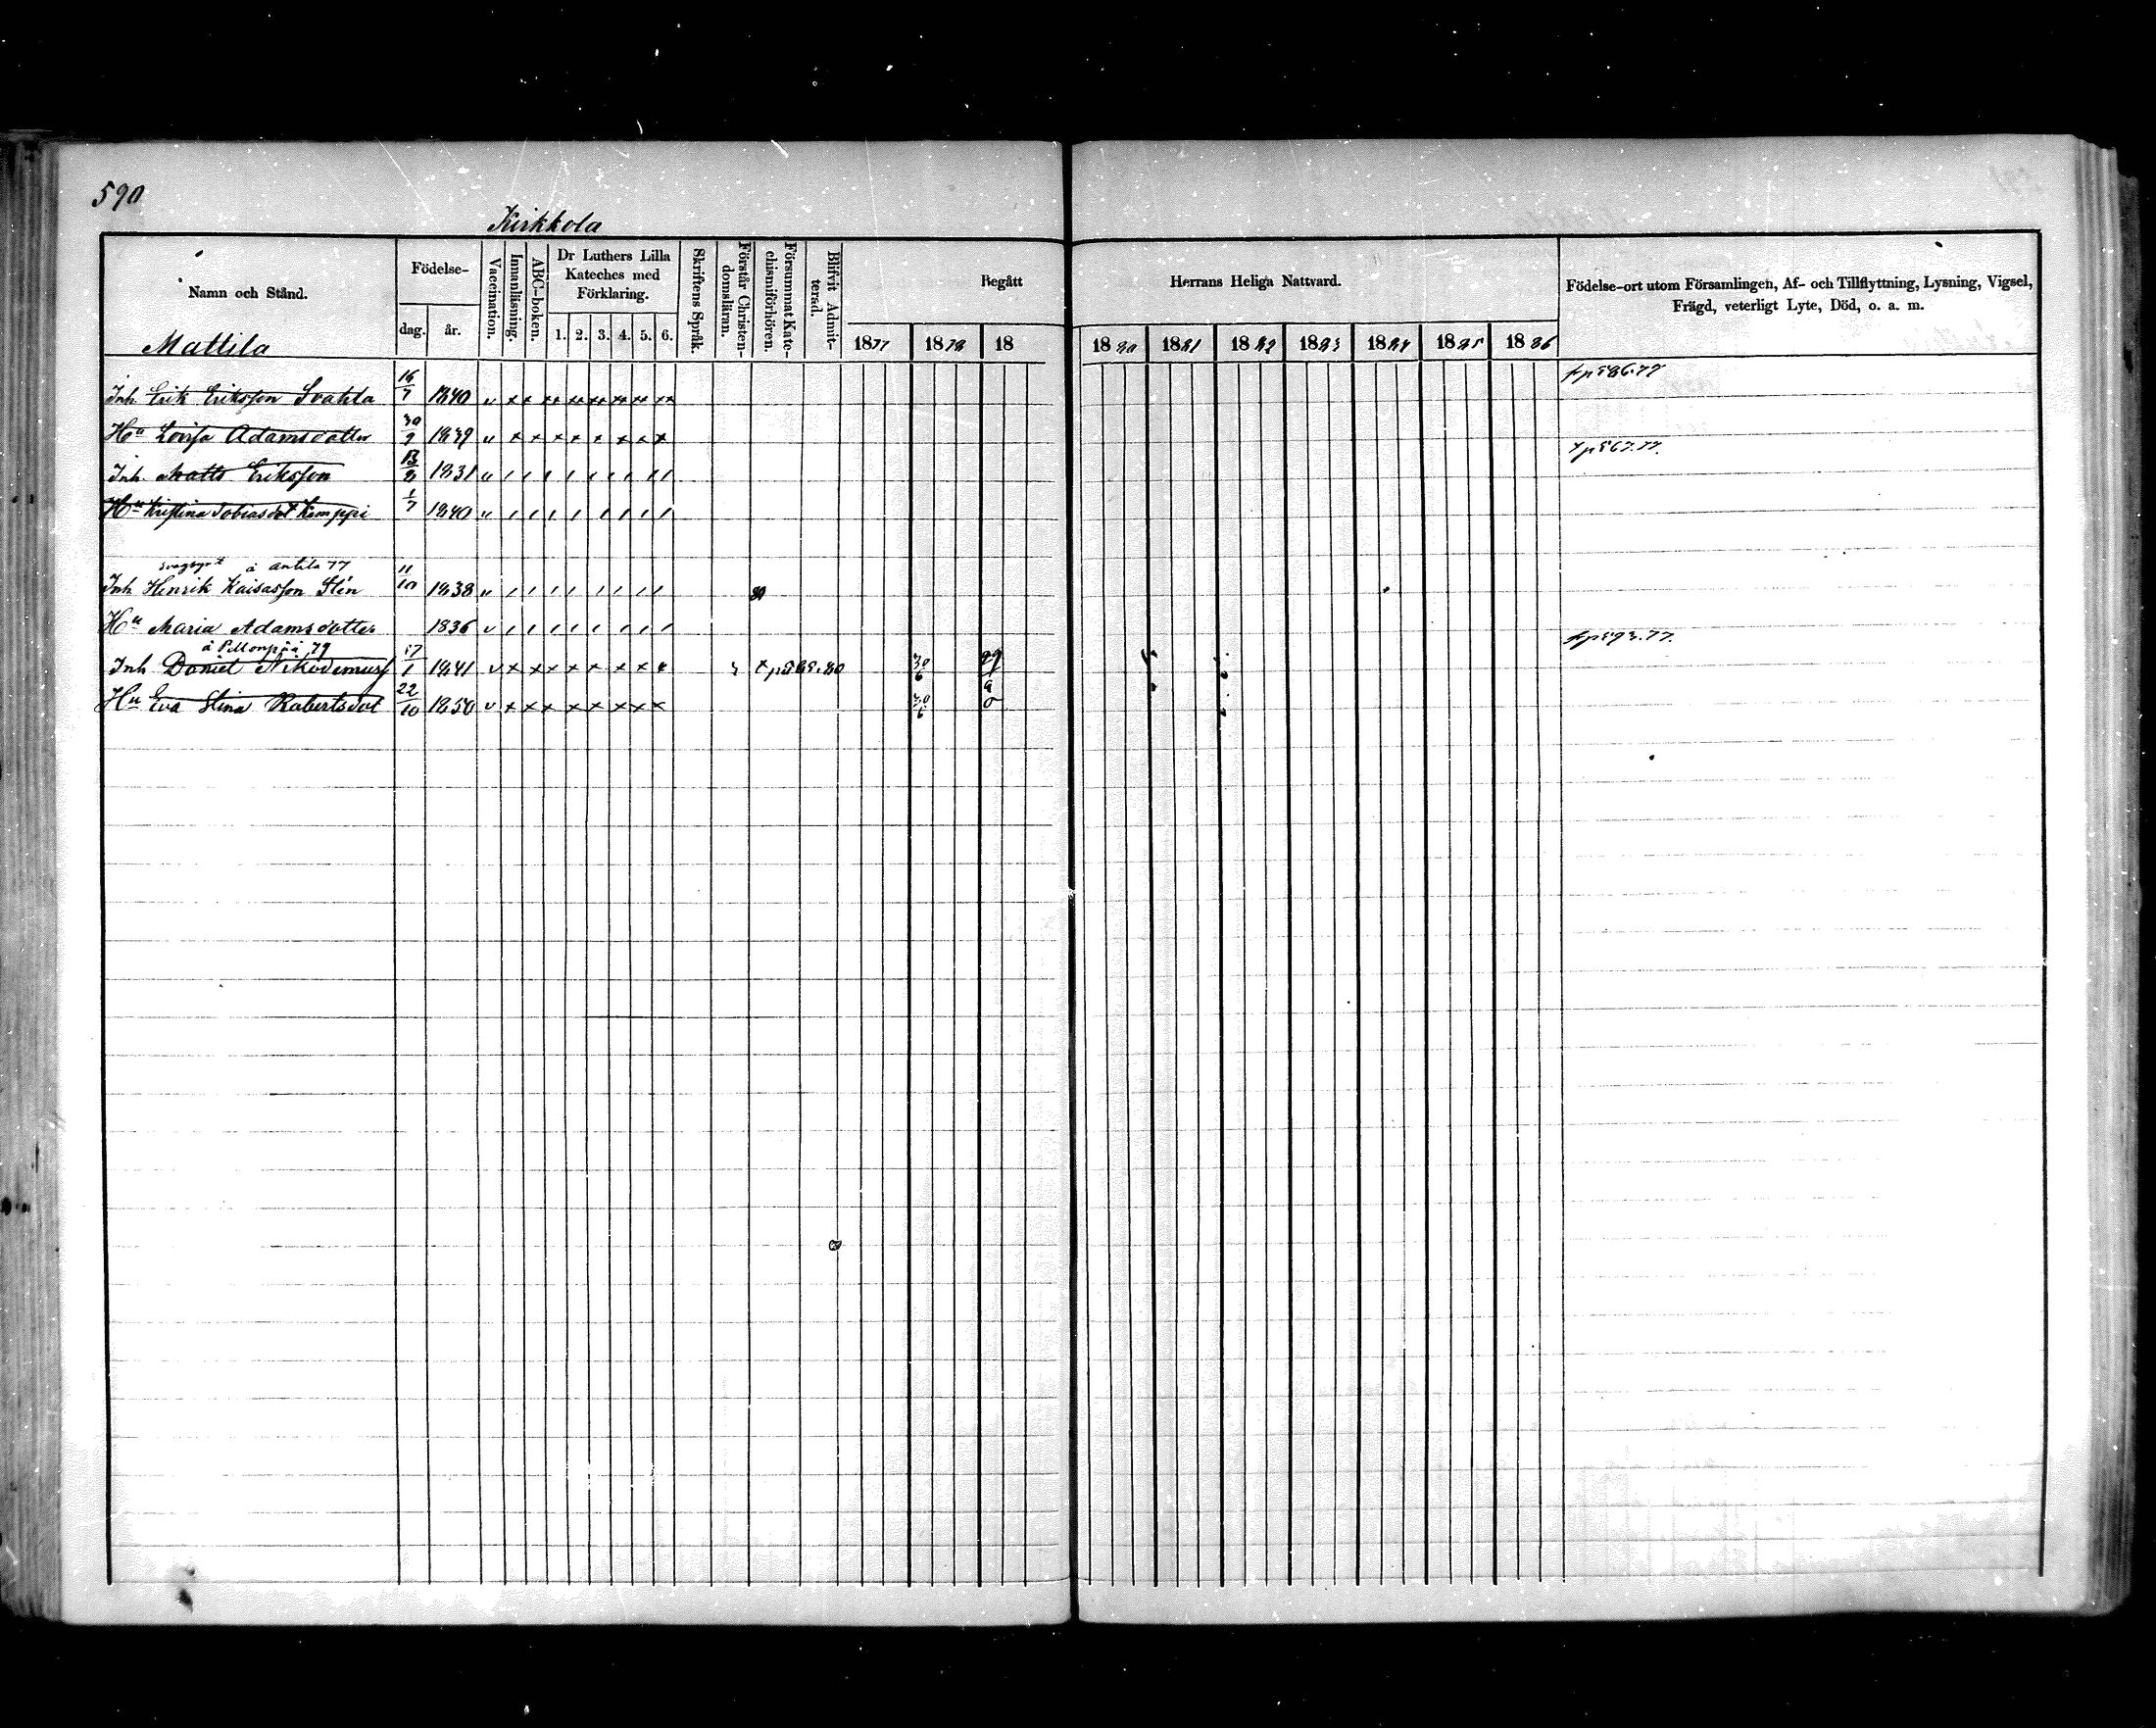 590
Kirkkola
Namn och Stånd.
Födelse-
dag. år.
Vaccination.
Innanläsning.
ABC-boken.
Dr Luthers Lilla
Kateches med
Förklaring.
1. 2. 3. 4. 5. 6.
Skriftens Språk.
Förstår Christen-
domsläran.
Försummat Kate-
chismiförhören.
Blifvit Admit-
terad.
Begått
Herrans Heliga Nattvard.
1877 1878 18
1880 1881 1882 1883 1884 1885 1886
Födelse-ort utom Församlingen, Af- och Tillflyttning, Lysning, Vigsel,
Frägd, veterligt Lyte, Död, o. a. m.
Mattila
Inh. Erik Eriksson 16/7 1840 v x x x x x x x x
Hu Lovisa Adamsdotter 30/9 1839 v x x x x x x x x
Inh. Matts Eriksson 13/2 1831
Hu Kristina Tobiasdot Kemppi 1/7 1840
å Antila 77
Inh Henrik Kaisasson Sten 11/10 1838 80
Hu Maria Adamsdotter 1836
Inh Daniel Nikodemuss 17/1 1841 v x x x x x x x x 30/6
Hu Eva Stina Robertsdot 22/10 1850 v x x x x x x x x 30/6